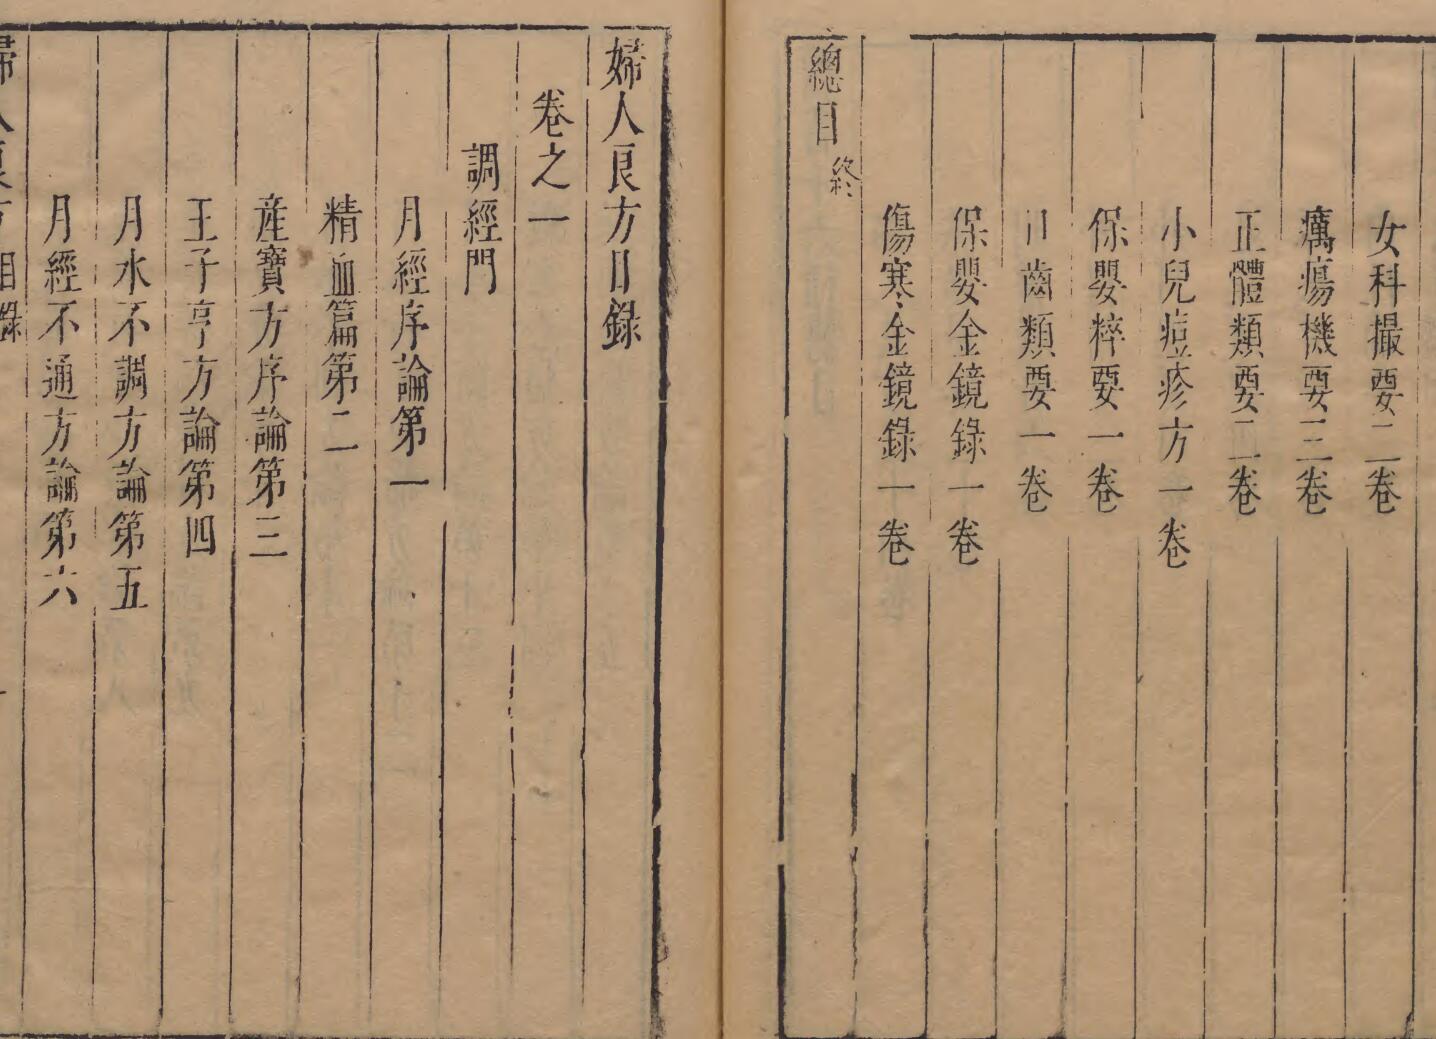 女科撮要二卷
癘瘍機要三卷
正體類要二卷
小兒痘疹方一卷
保嬰粹要一卷
口齒類要一卷
保嬰金鏡錄一卷
傷寒金鏡錄一卷
總目終
婦人良方目錄
卷之一
調經門
月經序論第一
精血篇第二
産寶方序論第三
王子亨方論第四
月水不調方論第五
月經不通方論第六
婦人良方目錄